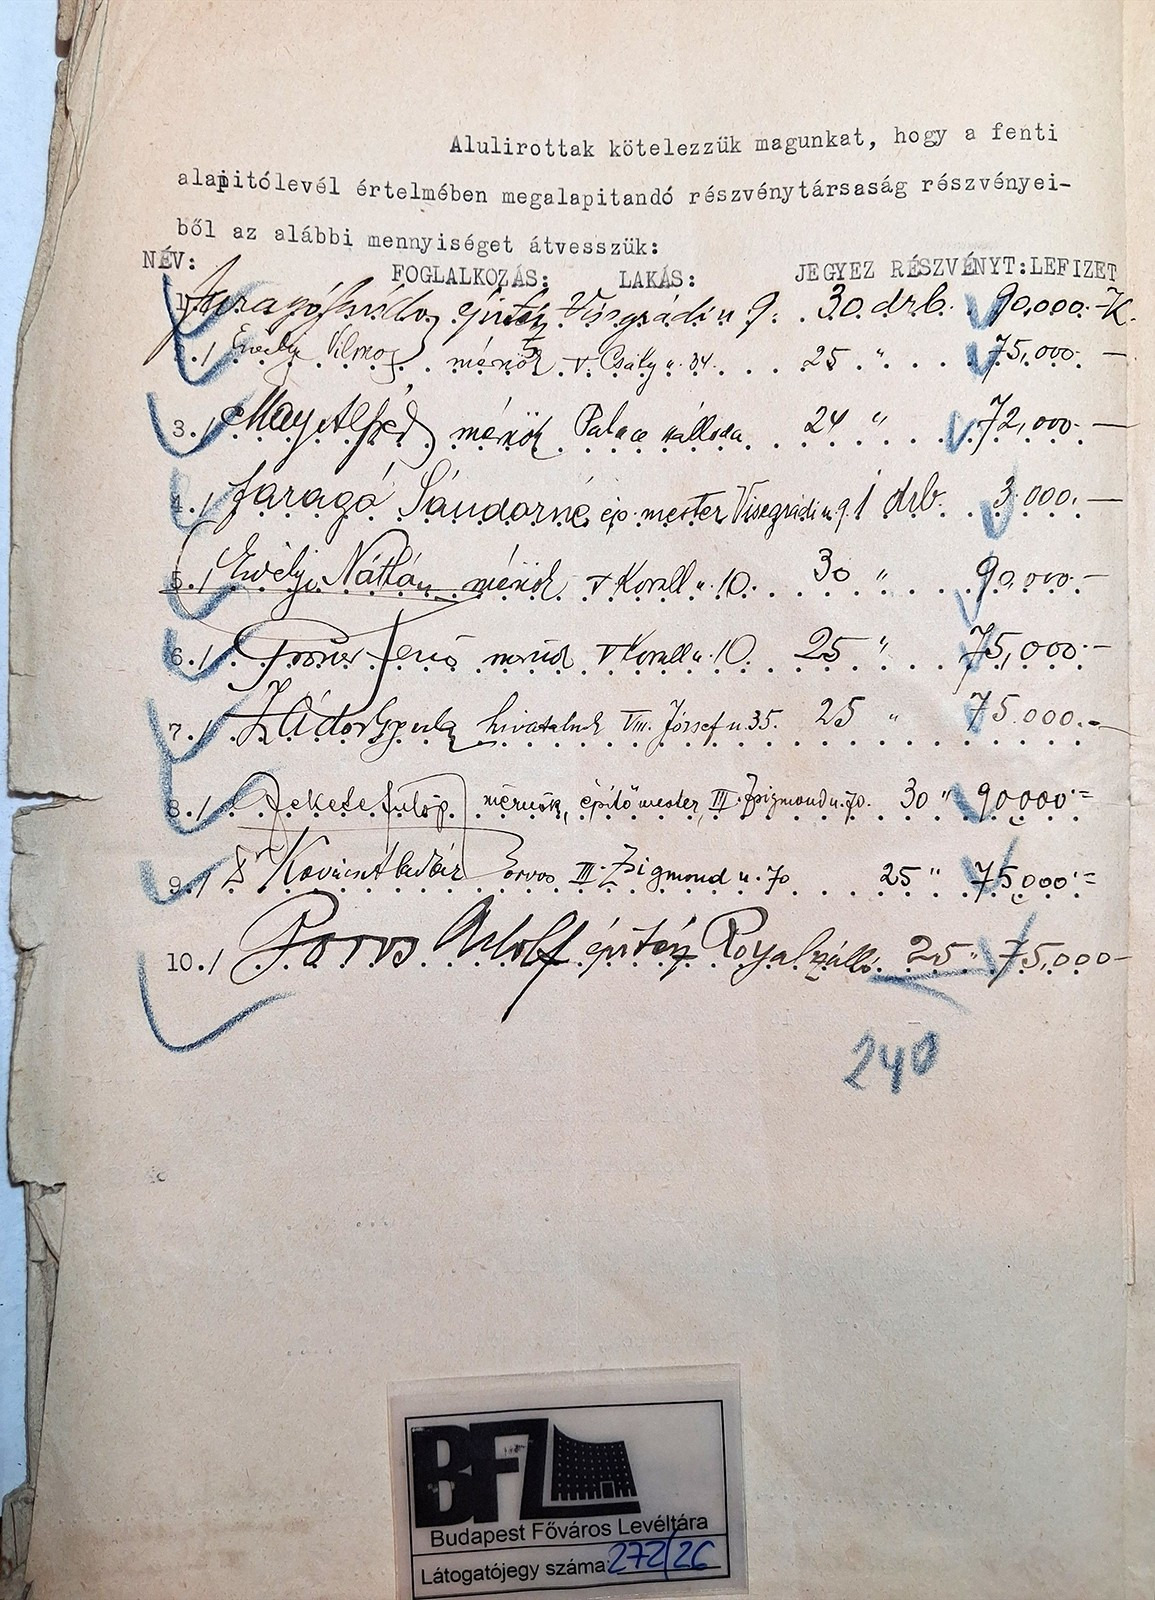 Alulirottak kötelezzük magunkat, hogy a fenti
alapitólevél értelmében megalapitandó részvénytársaság részvényei-
ből az alábbi mennyiséget átvesszük:
NÉV: FOGLALKOZÁS: LAKÁS: JEGYEZ RÉSZVÉNYT: LEFIZET
1./ Faragó Sándor épitész Visegrádi u 9. 30 drb. 90,000.-K.
2./ Erdélyi Vilmos mérnök V. Csáky u. 34. 25 " 75,000 —
3./ May Alfréd mérnök Palace szálloda 24 " 72,000.—
4./ Faragó Sándorné ép. mester Visegrádi u 9. 1 drb. 3.000.—
5./ Náthán mérnök V Korall u. 10. 30 " 90,000.—
6./ Jenő mérnök V Korall u. 10. 25 " 75,000.—
7./ Zádor Gyula hivatalnok VIII. József u. 35. 25 " 75.000.—
8./ Fekete Fülöp mérnök, építőmester, III. Zsigmond u. 70. 30 " 90,000.=
9./ Dr Kovács Aladár orvos III. Zsigmond u. 70 25 " 75,000.=
10./ Adolf épitész Royal szálló 25 " 75,000—
240
BFL
Budapest Főváros Levéltára
Látogatójegy száma: 272/26